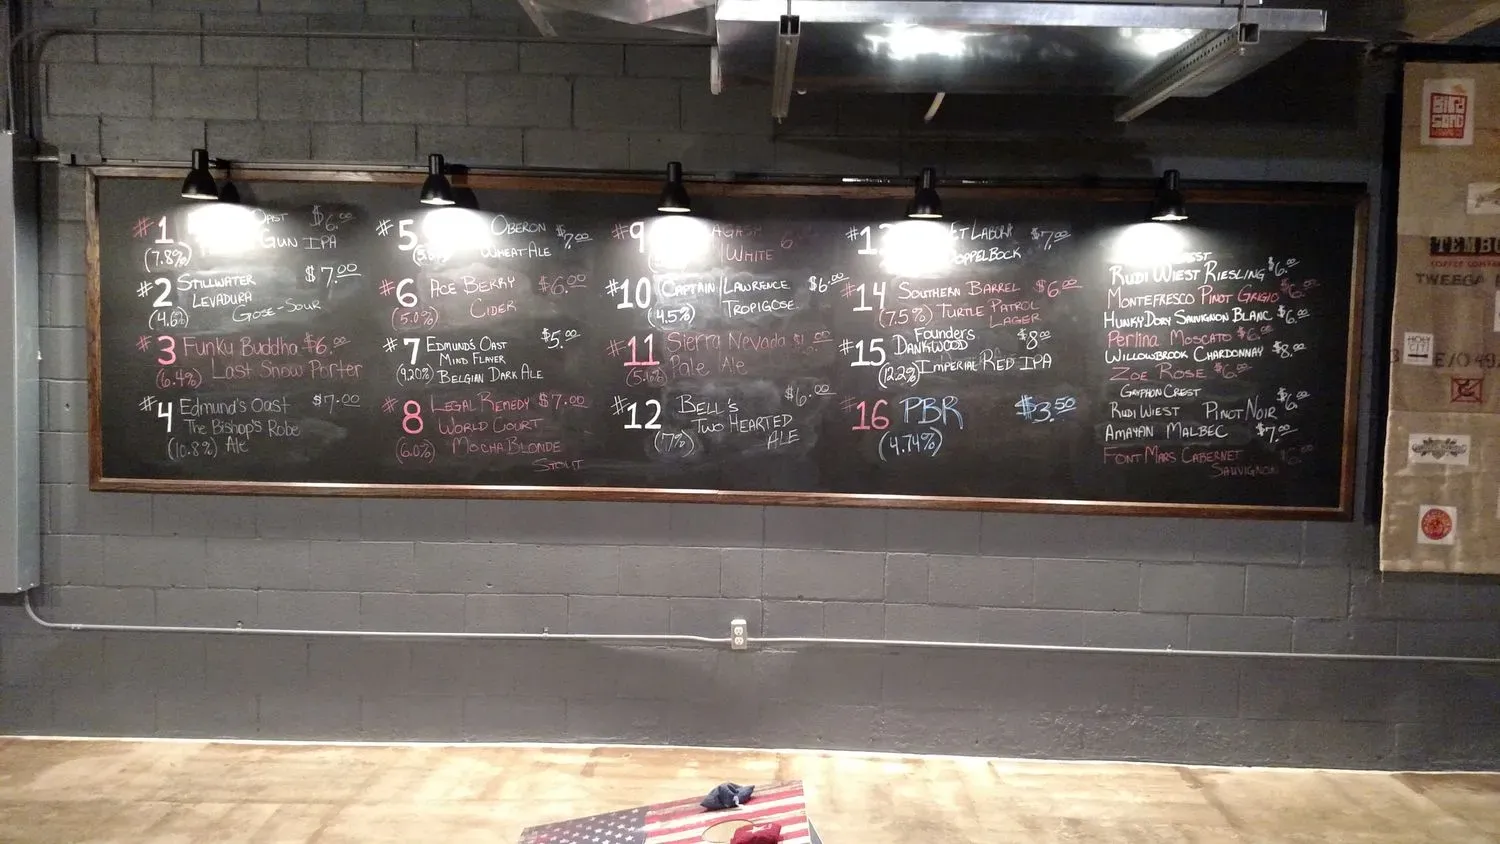 #1 OAST $6.00
GUN IPA
(7.8%)
#2 STILLWATER $7.00
LEVADURA
(4.6%) GOSE-SOUR
#3 Funky Buddha $6.00
(6.4%) Last Snow Porter
#4 Edmund's Oast $7.00
The Bishop's Robe
(10.8%) Ale
#5 OBERON $7.00
WHEAT ALE
#6 ACE BERRY $6.00
(5.0%) CIDER
#7 EDMUND'S OAST $5.00
MIND FLAYER
(9.20%) BELGIAN DARK ALE
#8 LEGAL REMEDY $7.00
WORLD COURT
(6.0%) MOCHA BLONDE
STOUT
#9
WHITE
#10 CAPTAIN LAWRENCE $6.00
(4.5%) TROPIGOSE
#11 Sierra Nevada
(5.6%) Pale Ale
#12 BELL'S $6.00
TWO HEARTED
(7%) ALE
$7.00
#14 SOUTHERN BARREL $6.00
(7.5%) TURTLE PATROL
LAGER
#15 Founders $8.00
DANKWOOD
(12.2%) IMPERIAL RED IPA
#16 PBR $3.50
(4.74%)
RUDI WIEST RIESLING $6.00
MONTEFRESCO PINOT GRIGIO $6.00
HUNKY DORY SAUVIGNON BLANC $6.00
PERLINA MOSCATO $6.00
WILLOWBROOK CHARDONNAY $8.00
ZOE ROSE $6.00
GRYPHON CREST
RUDI WIEST PINOT NOIR $6.00
AMAYAN MALBEC $7.00
FONT MARS CABERNET $6.00
SAUVIGNON
HOLY
CITY